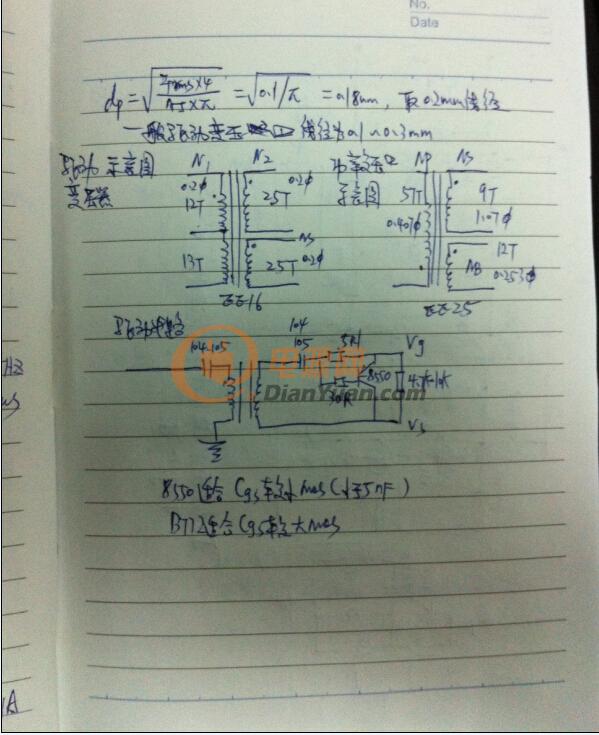 No.
Date
dp = √(Irms×4 / ΔJ×π) = √(0.1/π) = 0.18mm, 取0.2mm线径
一般驱动变压器 线径为0.1~0.3mm
驱动 示意图
变压器
N1 N2
0.2φ 0.2φ
12T 25T
N3
13T 25T 0.2φ
EE16
功率变压器
示意图
Np Ns
5T 9T
0.407φ 1.07φ
12T
NB 0.253φ
EE25
驱动电路
104 105
104
105
51R
30R
8550
4.7K-10K
Vg
Vs
电源网
DianYuan.com
8550适合 Cgs较小mos(小于5nF)
B772适合Cgs较大mos
Hz
A